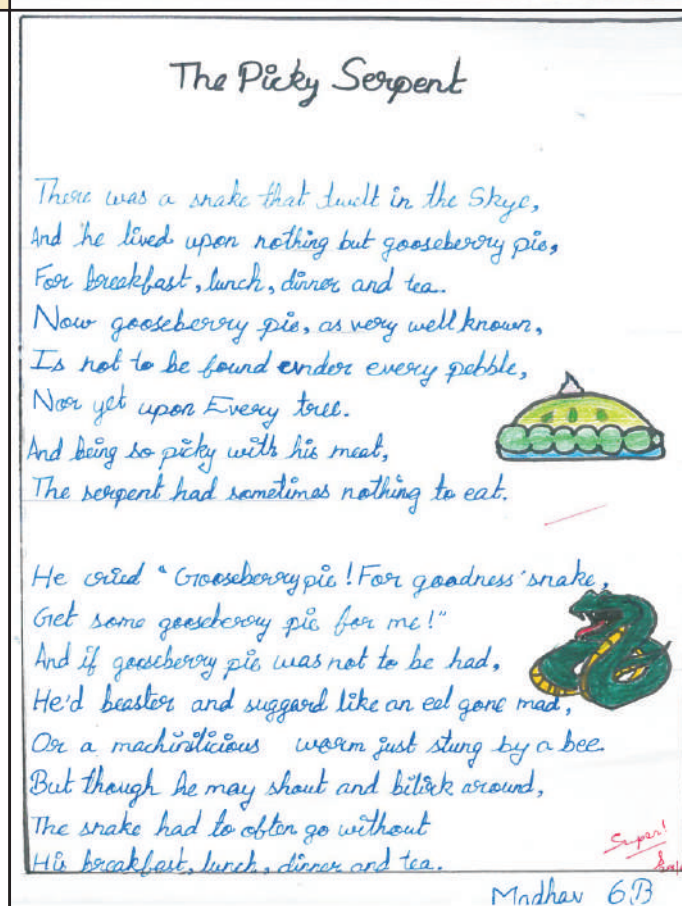 The Picky Serpent
There was a snake that dwelt in the Skye,
And he lived upon nothing but gooseberry pie,
For breakfast, lunch, dinner and tea.
Now gooseberry pie, as very well known,
Is not to be found under every pebble,
Nor yet upon Every tree.
And being so picky with his meat,
The serpent had sometimes nothing to eat.
He cried "Gooseberry pie! For goodness' snake,
Get some gooseberry pie for me!"
And if gooseberry pie was not to be had,
He'd beaster and suggard like an eel gone mad,
Or a machinilicious worm just stung by a bee.
But though he may shout and around,
The snake had to often go without
His breakfast, lunch, dinner and tea.
Super!
Madhav 6B